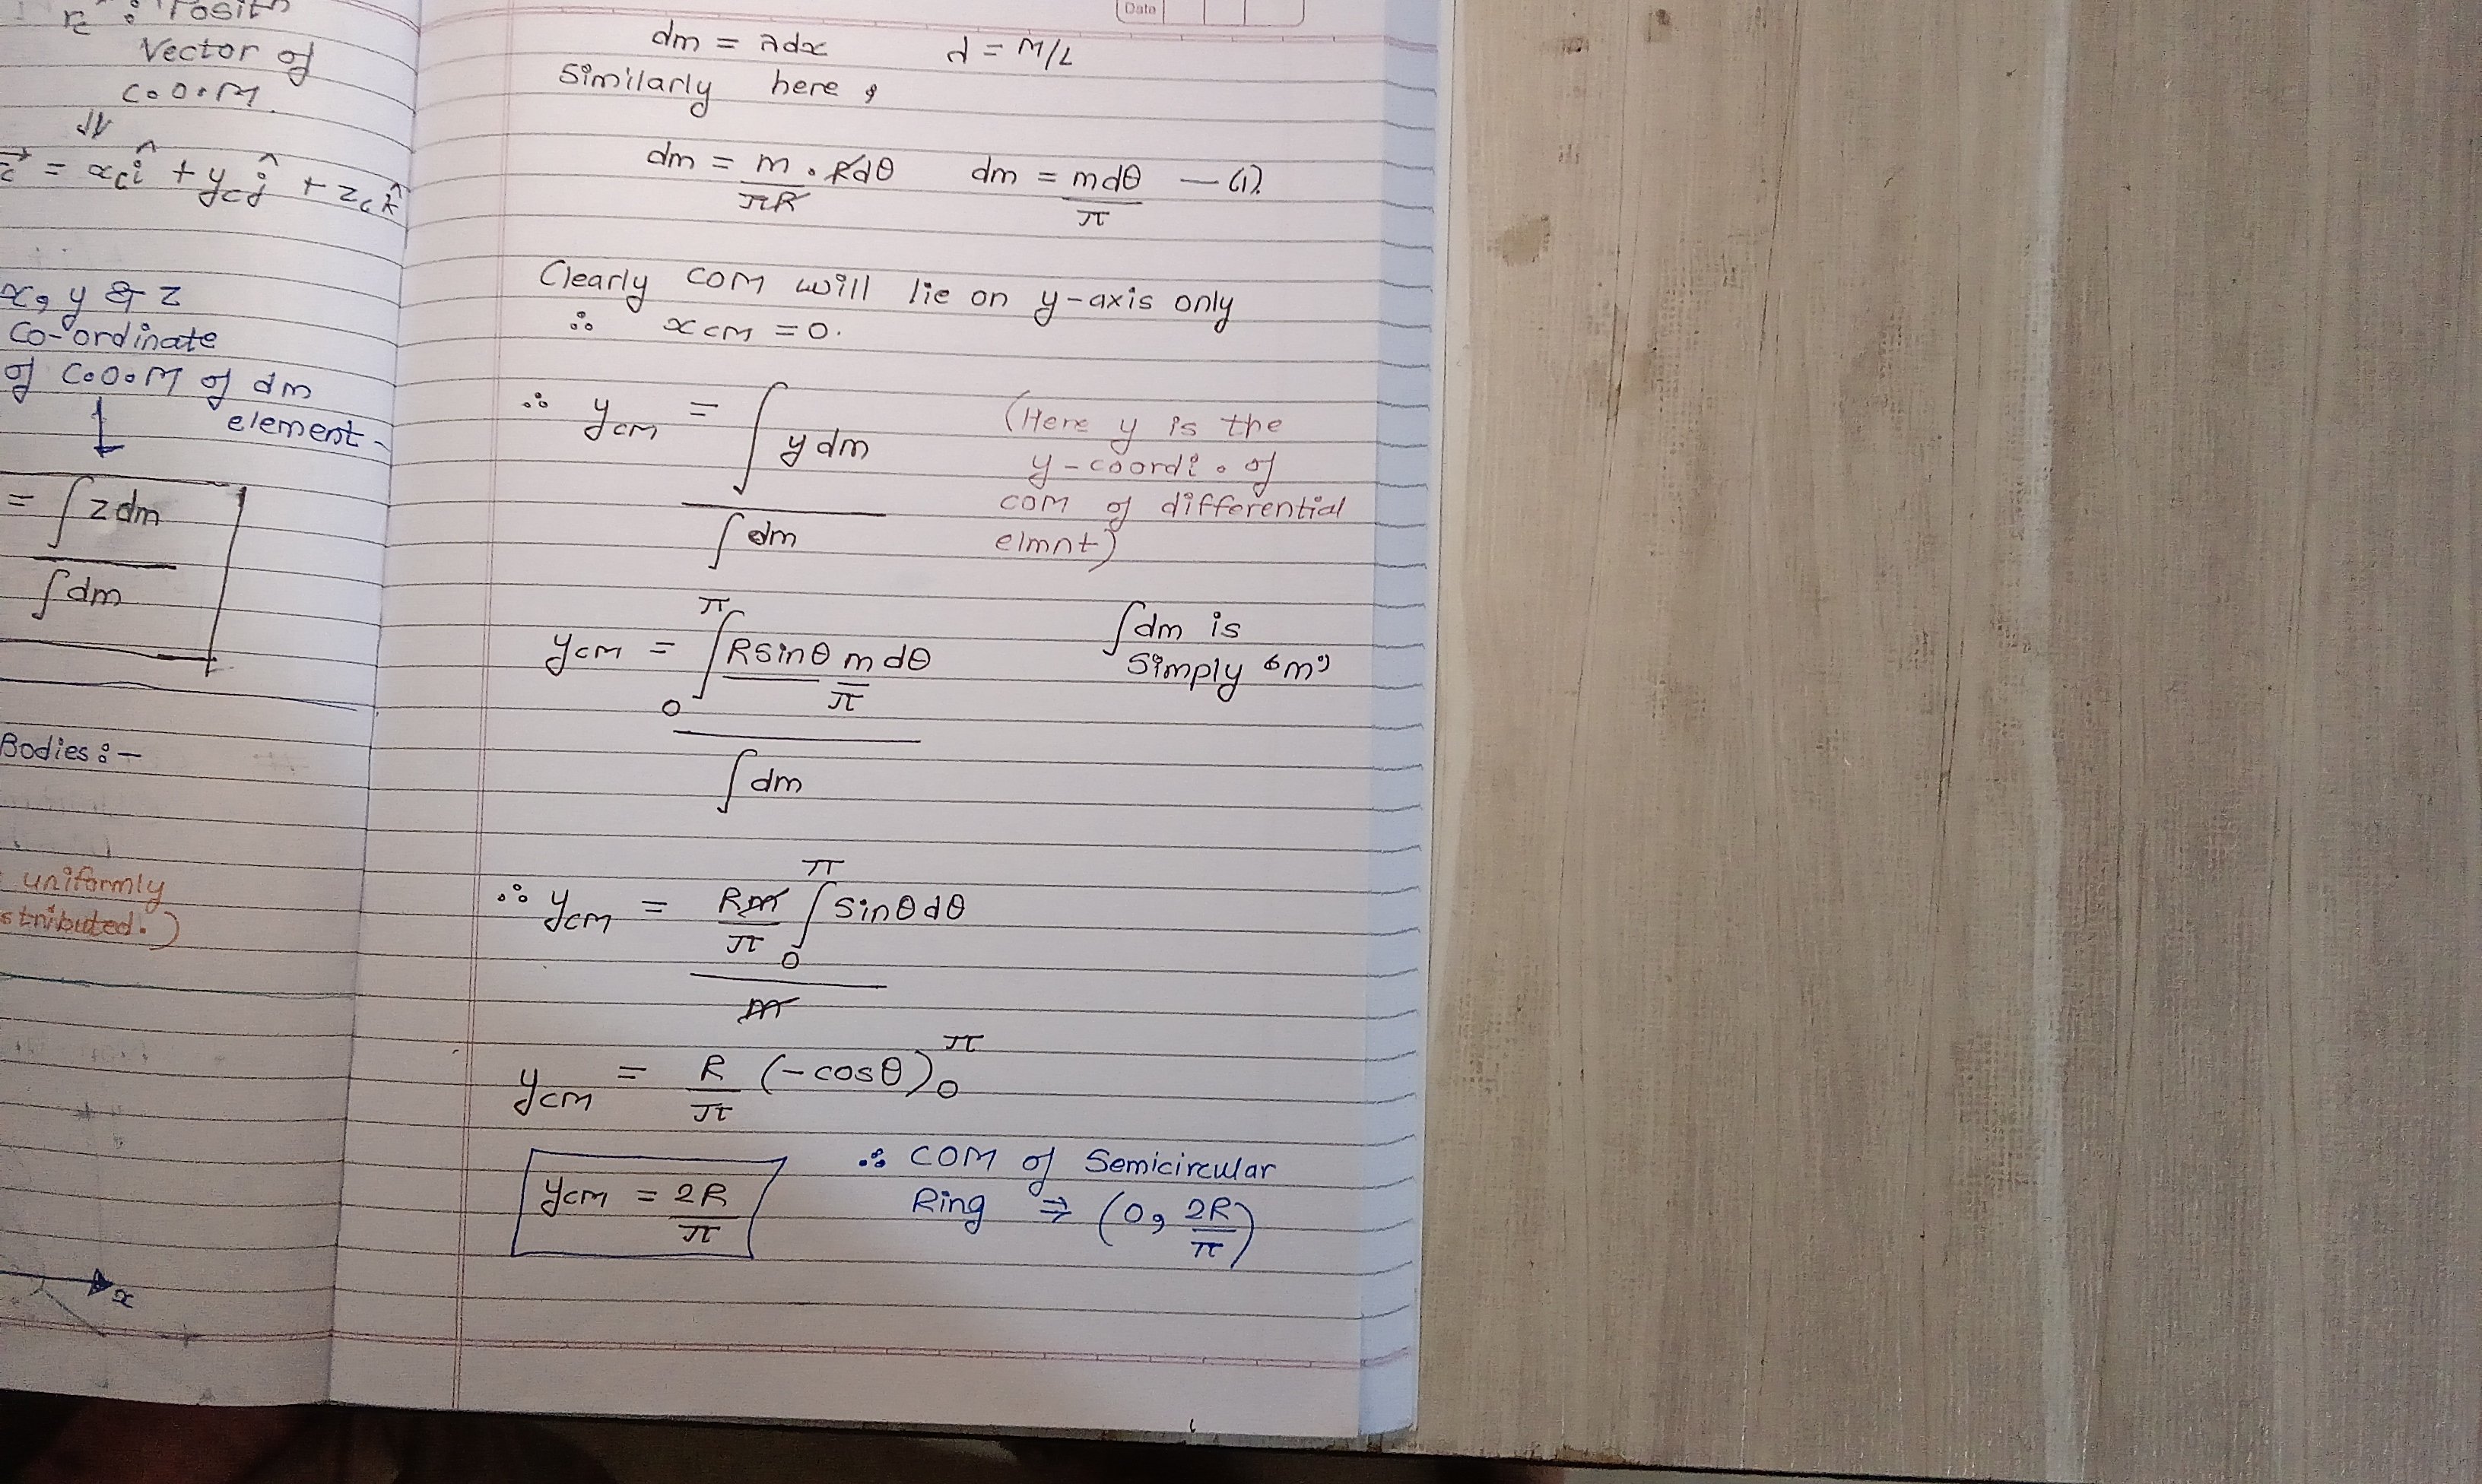 rc : Positn
Vector of
C.O.M
⇓
c⃗ = xcî + ycĵ + zck̂
x, y & z
co-ordinate
of C.O.M of dm
element
↓
= ∫z dm
∫dm
Bodies :-
uniformly
stributed.)
x
Date
dm = λdx    λ = M/L
Similarly here,
dm = m . Rdθ    dm = mdθ — (1).
πR    π
Clearly COM will lie on y-axis only
∴ xcm = 0.
∴ ycm = ∫ y dm    (Here y is the
y-coordi. of
COM of differential
elmnt)
∫dm
ycm = ∫ Rsinθ m dθ    ∫dm is
Simply 'm'
π
0
π
∫dm
∴ ycm = Rm ∫ sinθdθ
π
π
0
m
ycm = R (-cosθ) π 0
π
ycm = 2R    ∴ COM of Semicircular
π    Ring ⇒ (0, 2R/π)